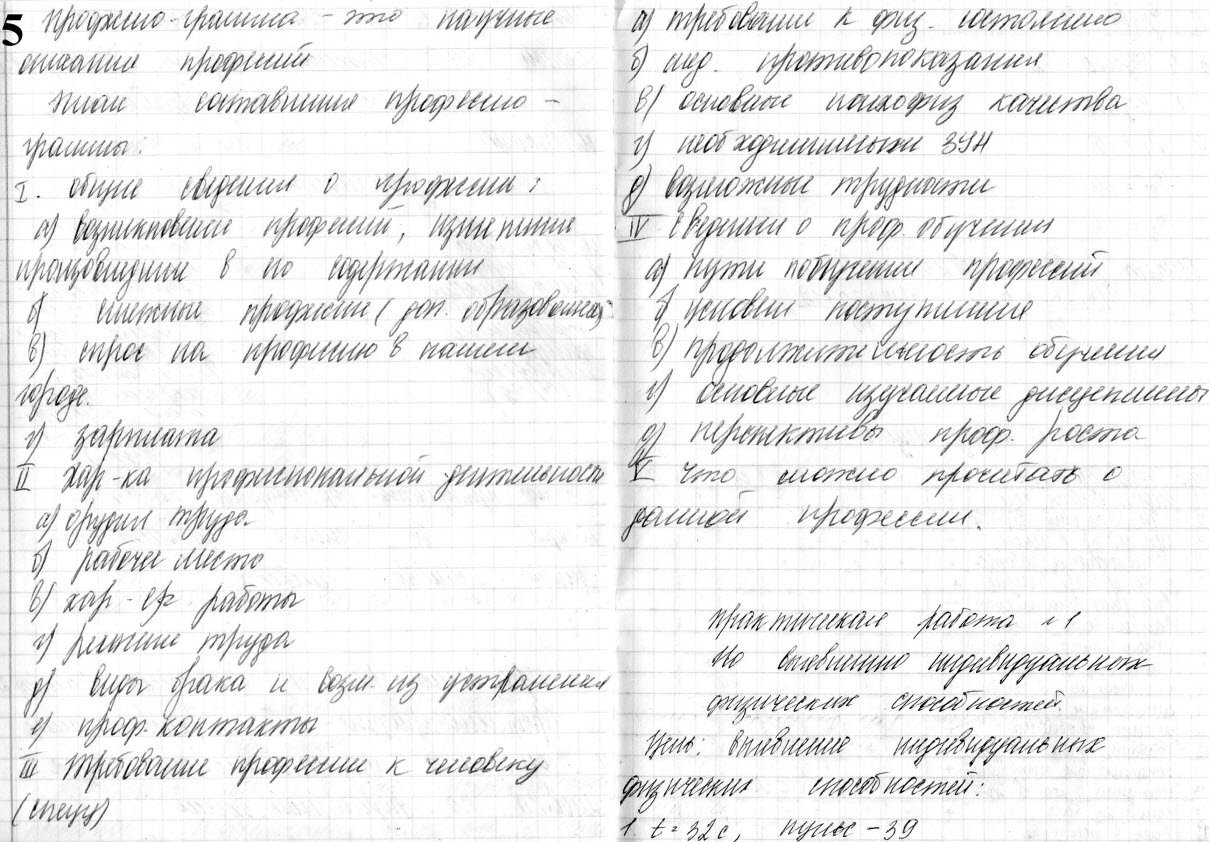 5 профессио-грамма - это научные
описания профессий
План составления профессио-
граммы:
I. общие сведения о профессии:
а) возникновение профессий, изменения
произошедшие в его содержании
б) смежные профессии (доп. образования)
в) спрос на профессию в нашем
городе.
г) зарплата
II хар-ка профессиональной деятельности
а) орудия труда
б) рабочее место
в) хар-ер работы
г) режим труда
д) виды брака и возм. из устранения
е) проф. контакты
III требование профессии к человеку
(спецу)
а) требование к физ. состоянию
б) мед. противопоказания
в) основные психофиз качества
г) необходимыми ЗУН
д) возможные трудности
IV сведения о проф обучении
а) пути получения профессий
б) условия поступления
в) продолжительность обучения
г) основные изучаемые дисциплины
д) перспективы проф. роста
V что можно прочитать о
данной профессии.
практическая работа №1
по выявлению индивидуальных
физических способностей.
Цель: выявление индивидуальных
физических способностей:
1. t = 32с, пульс - 39